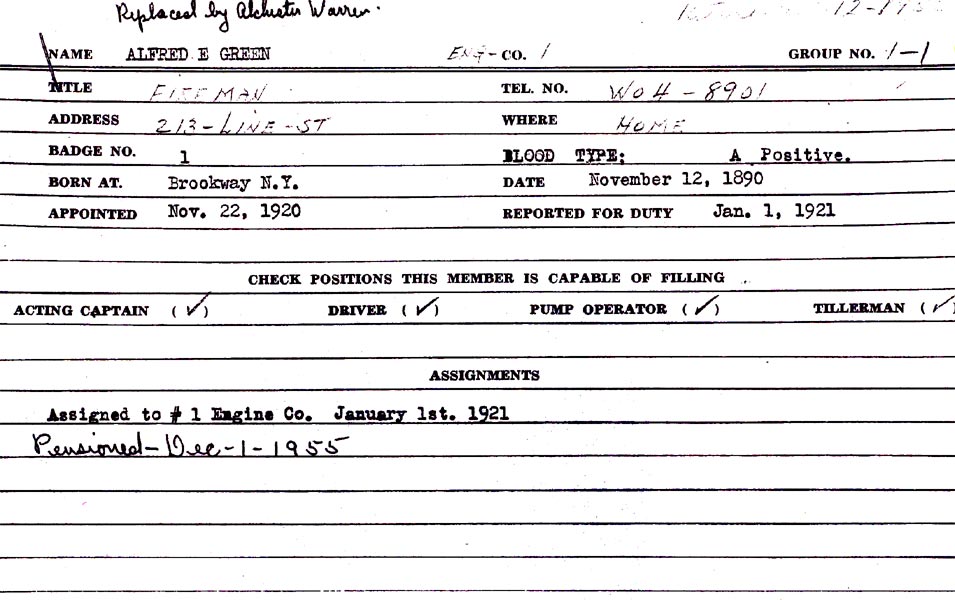 Replaced by Alchester Warren.
NAME ALFRED E GREEN ENG-CO. 1 GROUP NO. 1-1
TITLE FIREMAN TEL. NO. WO4-8901
ADDRESS 213-LINE-ST WHERE HOME
BADGE NO. 1 BLOOD TYPE: A Positive.
BORN AT. Brookway N.Y. DATE November 12, 1890
APPOINTED Nov. 22, 1920 REPORTED FOR DUTY Jan. 1, 1921
CHECK POSITIONS THIS MEMBER IS CAPABLE OF FILLING
ACTING CAPTAIN (✓) DRIVER (✓) PUMP OPERATOR (✓) TILLERMAN (✓)
ASSIGNMENTS
Assigned to # 1 Engine Co. January 1st. 1921
Pensioned-Dec-1-1955